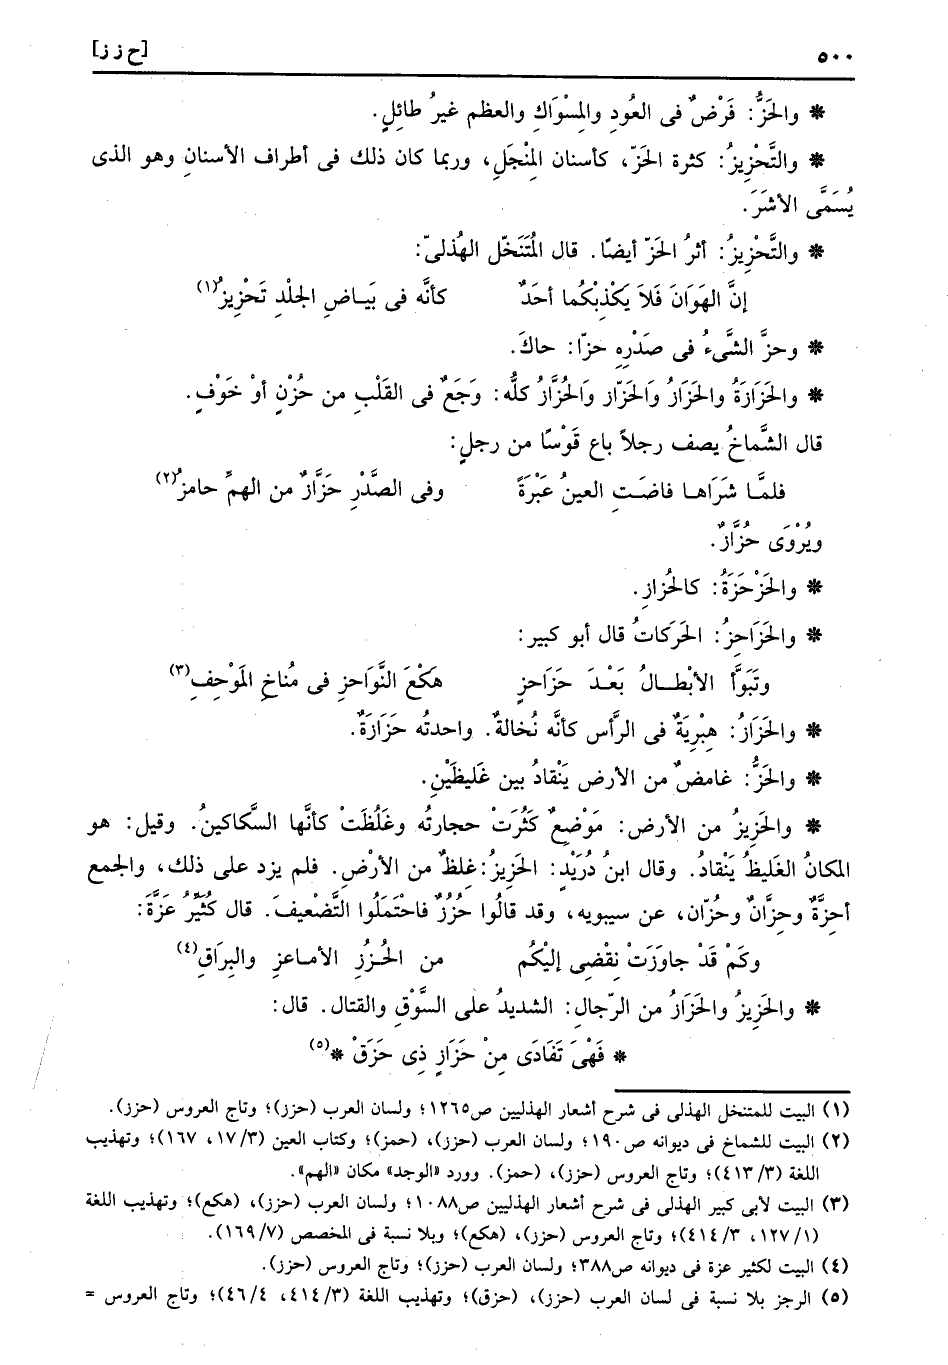 ٥٠٠ [ح ز ز]
* والحَزُّ: فَرْضٌ فى العُودِ والمِسْوَاكِ والعظم غيرُ طائِلٍ.
* والتَّحْزِيزُ: كثرة الحَزّ، كأسنان المِنْجَلِ، وربما كان ذلك فى أطراف الأسنانِ وهو الذى
يُسَمَّى الأشَرَ.
* والتَّحْزِيزُ: أثرُ الحَزّ أيضًا. قال المُتَنَخّل الهُذلىّ:
إنَّ الهَوَانَ فَلاَ يَكْذِبْكُما أحَدٌ كأنَّه فى بَيَـاضِ الجلْدِ تَحْزِيزُ(١)
* وحزَّ الشَّىءُ فى صَدْرِهِ حزّا: حاكَ.
* والحَزَازَةُ والحَزَازُ وَالحَزّاز وَالحُزَّازُ كلُّه: وَجَعٌ فى القَلْبِ من حُزْنٍ أوْ خَوْفٍ.
قال الشَّماخُ يصف رجلاً باع قَوْسًا من رجلٍ:
فلمَّـا شَرَاهـا فاضَـتِ العينُ عَبْرَةً وفى الصَّدْرِ حَزَّازٌ من الهمِّ حامز(٢)
ويُرْوَى حُزَّازٌ.
* والحَزْحَزَةُ: كالحُزازِ.
* والحَزَاحِزُ: الحَرَكاتُ قال أبو كبير:
وتَبَوَّأ الأبْطـالُ بَعْـدَ حَزَاحزٍ هَكْعَ النَّوَاحزِ فى مُناخِ المَوْحِفِ(٣)
* والحَزَازُ: هِبْرِيَةٌ فى الرَّأس كأنَّه نُخالةٌ. واحدتُه حَزَازَةٌ.
* والحَزُّ: غامضٌ من الأرض يَنْقادُ بين غَليظَيْنِ.
* والحَزِيزُ من الأرض: مَوْضِعٌ كَثُرَتْ حجارتُه وغَلُظَتْ كأنَّها السكَّاكينُ. وقيل: هو
المكانُ الغَليظُ يَنْقادُ. وقال ابنُ دُرَيْدٍ: الحَزِيزُ: غلظٌ من الأرْضِ. فلم يزد على ذلك، والجمع
أحِزَّةٌ وحِزَّانٌ وحُزّان، عن سيبويه، وقد قالُوا حُزُزٌ فاحْتَملُوا التَّضْعيفَ. قال كُثَيِّرُ عَزَّةَ:
وكَمْ قَدْ جاوَزَتْ نِقْضِى إليْكُم من الحُـزُزِ الأماعزِ والبِرَاقِ(٤)
* والحَزِيزُ والحَزَازُ من الرّجال: الشديدُ على السَّوْقِ والقتال. قال:
* فَهْىَ تَفَادَى مِنْ حَزَازٍ ذِى حَزَقْ *(٥)
(١) البيت للمتنخل الهذلى فى شرح أشعار الهذليين ص١٢٦٥؛ ولسان العرب (حزز)؛ وتاج العروس (حزز).
(٢) البيت للشماخ فى ديوانه ص١٩٠؛ ولسان العرب (حزز)، (حمز)؛ وكتاب العين (١٧/٣، ١٦٧)؛ وتهذيب
اللغة (٤١٣/٣)؛ وتاج العروس (حزز)، (حمز). وورد «الوجد» مكان «الهم».
(٣) البيت لأبى كبير الهذلى فى شرح أشعار الهذليين ص١٠٨٨؛ ولسان العرب (حزز)، (هكع)؛ وتهذيب اللغة
(١٢٧/١، ٤١٤/٣)؛ وتاج العروس (حزز)، (هكع)؛ وبلا نسبة فى المخصص (١٦٩/٧).
(٤) البيت لكثير عزة فى ديوانه ص٣٨٨؛ ولسان العرب (حزز)؛ وتاج العروس (حزز).
(٥) الرجز بلا نسبة فى لسان العرب (حزز)، (حزق)؛ وتهذيب اللغة (٤١٤/٣، ٤٦/٤)؛ وتاج العروس =